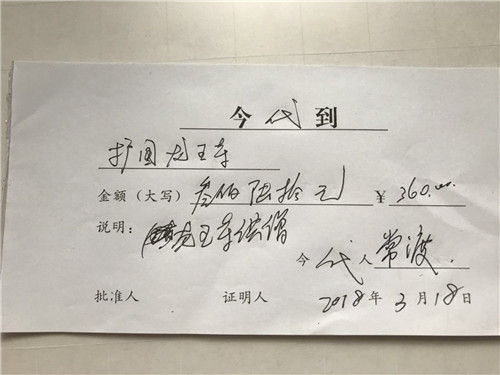 今代到
护国龙王寺
金额（大写） 叁佰陆拾元 ¥ 360.00
说明： 龙王寺供僧
今代人 常渡.
批准人 证明人 2018年3月18日